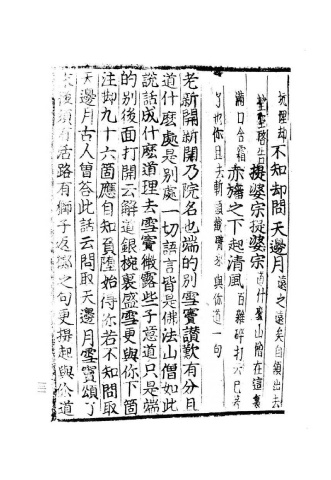 坑埋却不知却問天邊月遠之遠矣自領出去
望空啓告提婆宗提婆宗道什麼山僧在這裏
滿口含霜赤旛之下起清風百雜碎打云已著
了也你且去斬頭截臂來與你道一句
老新開新開乃院名也端的別雪竇讚歎有分且
道什麼處是別處一切語言皆是佛法山僧如此
說話成什麼道理去雪竇微露些子意道只是端
的別後面打開云解道銀椀裏盛雪更與你下箇
注却九十六箇應自知負墮始得你若不知問取
天邊月古人曾答此話云問取天邊月雪竇頌了
末後須有活路有獅子返擲之句更提起與你道